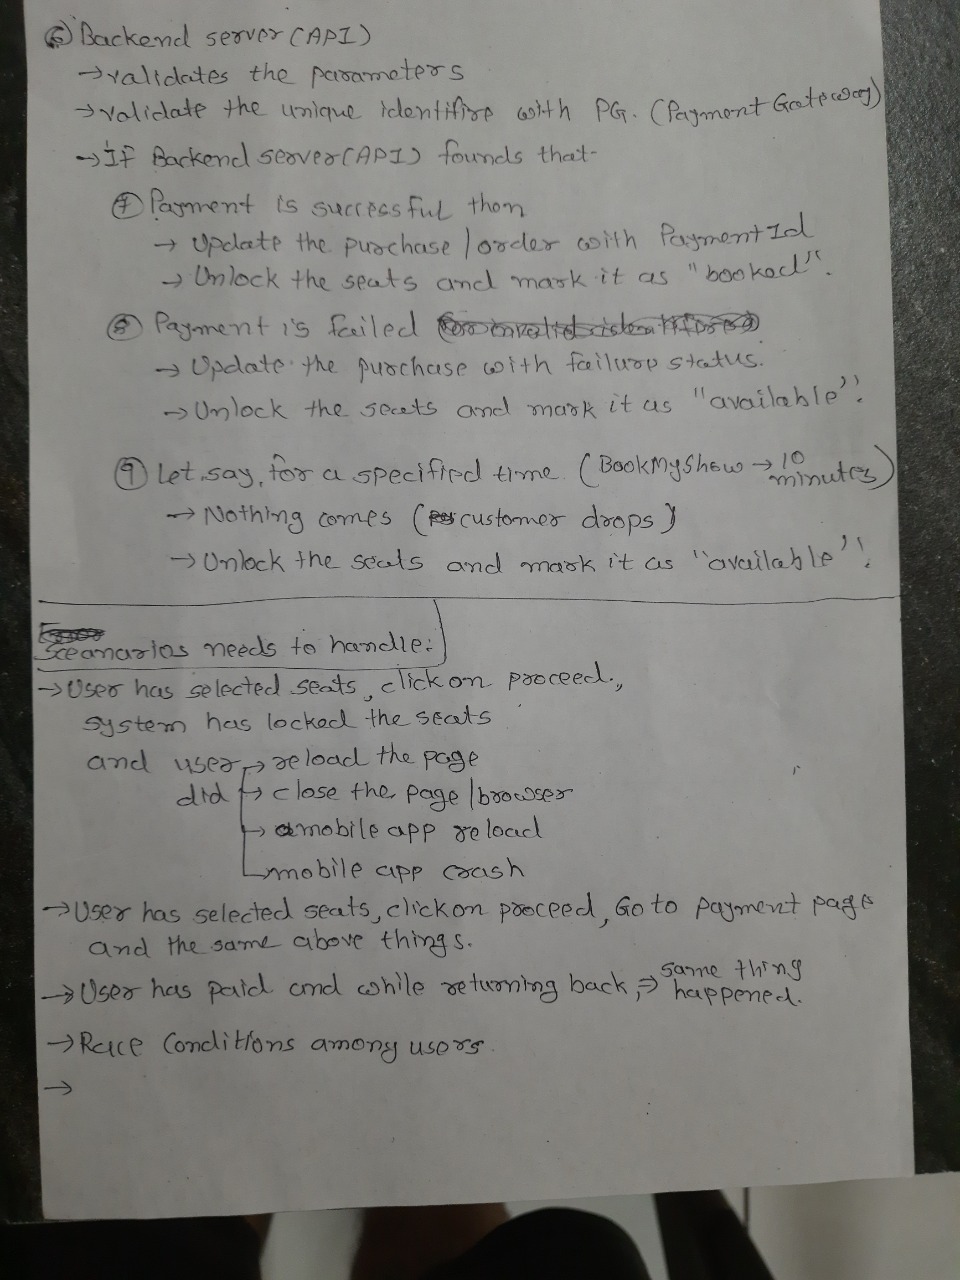 ⑥ Backend server (API)
→ validates the parameters
→ validate the unique identifire with PG. (Payment Gateway)
→ If Backend server (API) founds that-
⑦ Payment is successful then
→ Update the purchase / order with Payment Id
→ Unlock the seats and mark it as "booked".
⑧ Payment is failed
→ Update the purchase with failure status.
→ Unlock the seats and mark it as "available".
⑨ Let say, for a specified time (BookMyShow → 10 minutes)
→ Nothing comes (customer drops)
→ Unlock the seats and mark it as "available".
Sceanarios needs to handle:
→ User has selected seats, click on proceed,
system has locked the seats
and user → reload the page
did → close the page / browser
→ mobile app reload
mobile app crash
→ User has selected seats, click on proceed, Go to payment page
and the same above things.
→ User has paid and while returning back, ⇒ same thing happened.
→ Race Conditions among users.
→